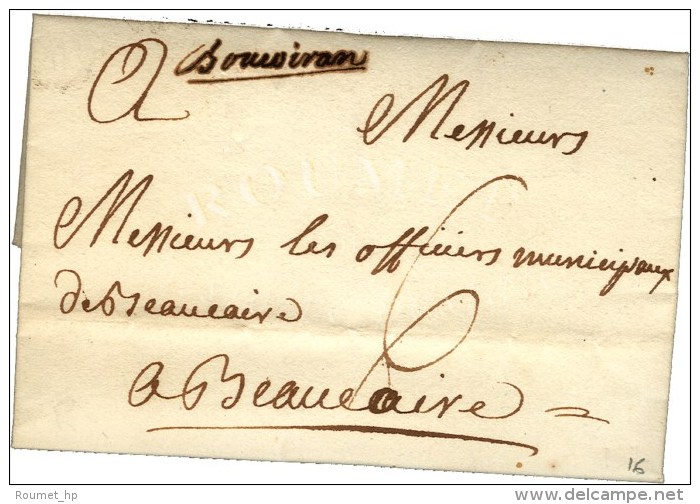 Boucoiran
Messieurs
Messieurs les officiers municipaux
de Beaucaire
6
a Beaucaire
16
Roumet_hp
www.delcampe.net